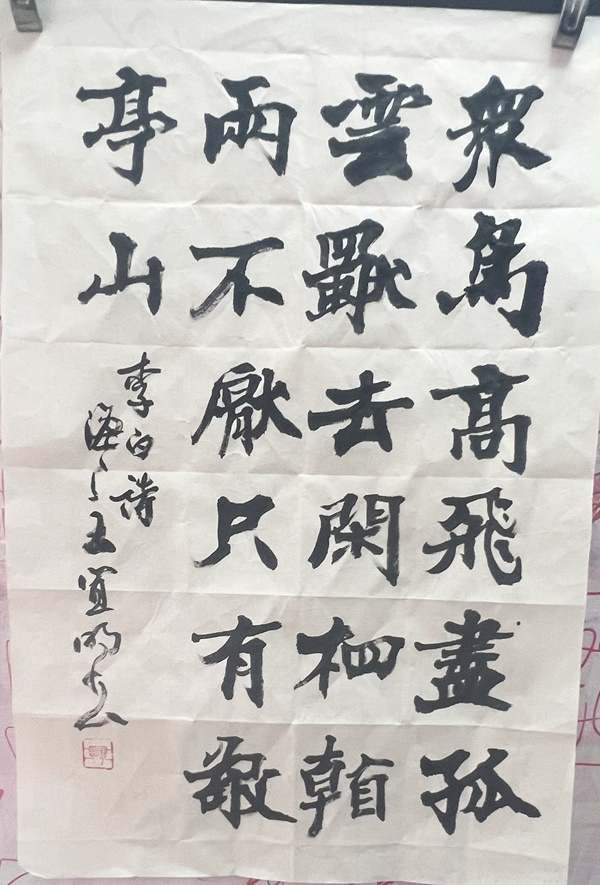 衆鳥高飛盡孤
雲獨去閑相看
兩不厭只有敬
亭山
李白詩
王宜明